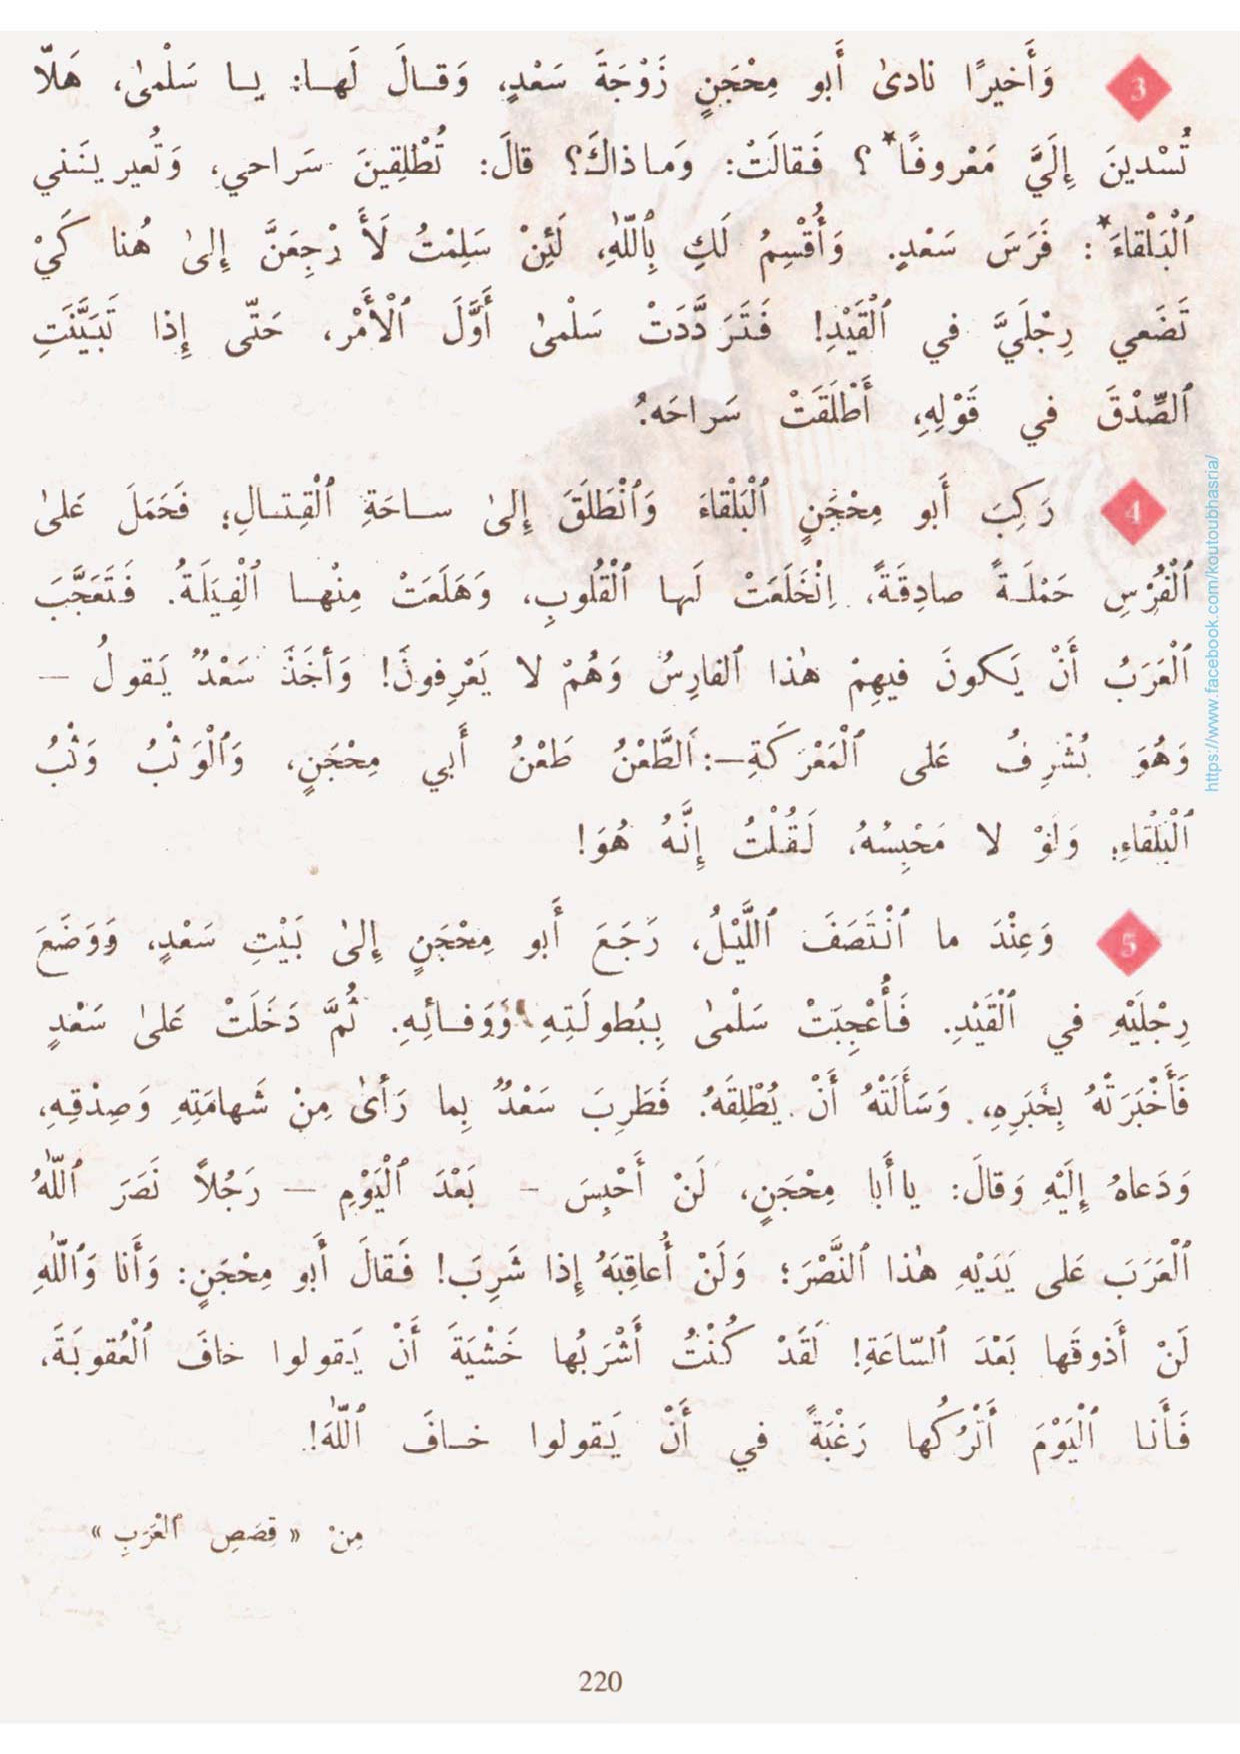 3 وَأَخيرًا نادىٰ أَبو مِحْجَنٍ زَوْجَةَ سَعْدٍ، وَقالَ لَها: يا سَلْمىٰ، هَلاّ
تُسْدينَ إِلَيَّ مَعْروفًا* ؟ فَقالَتْ: وَماذاكَ؟ قالَ: تُطْلِقينَ سَراحي، وَتُعيرينَني
ٱلْبَلْقاءَ*: فَرَسَ سَعْدٍ. وَأُقْسِمُ لَكِ بِٱللّٰهِ، لَئِنْ سَلِمْتُ لَأَرْجِعَنَّ إِلىٰ هُنا كَيْ
تَضَعي رِجْلَيَّ في ٱلْقَيْدِ! فَتَرَدَّدَتْ سَلْمىٰ أَوَّلَ ٱلْأَمْرِ، حَتّى إِذا تَبَيَّنَتِ
ٱلصِّدْقَ في قَوْلِهِ، أَطْلَقَتْ سَراحَهُ.
4 رَكِبَ أَبو مِحْجَنٍ ٱلْبَلْقاءَ وَٱنْطَلَقَ إِلىٰ ساحَةِ ٱلْقِتالِ؛ فَحَمَلَ عَلىٰ
ٱلْفُرْسِ حَمْلَةً صادِقَةً، اِنْخَلَعَتْ لَها ٱلْقُلُوبِ، وَهَلَعَتْ مِنْها ٱلْفِيَلَةُ. فَتَعَجَّبَ
ٱلْعَرَبُ أَنْ يَكونَ فيهِمْ هٰذا ٱلفارِسُ وَهُمْ لا يَعْرِفونَ! وَأَخَذَ سَعْدٌ يَقولُ —
وَهُوَ يُشْرِفُ عَلى ٱلْمَعْرَكَةِ —: اَلطَّعْنُ طَعْنُ أَبي مِحْجَنٍ، وَٱلْوَثْبُ وَثْبُ
ٱلْبَلْقاءِ؛ وَلَوْ لا مَحْبِسُهُ، لَقُلْتُ إِنَّهُ هُوَ!
5 وَعِنْدَ ما ٱنْتَصَفَ ٱللَّيْلُ، رَجَعَ أَبو مِحْجَنٍ إِلىٰ بَيْتِ سَعْدٍ، وَوَضَعَ
رِجْلَيْهِ في ٱلْقَيْدِ. فَأُعْجِبَتْ سَلْمىٰ بِبُطولَتِهِ وَوَفائِهِ. ثُمَّ دَخَلَتْ عَلىٰ سَعْدٍ
فَأَخْبَرَتْهُ بِخَبَرِهِ، وَسَأَلَتْهُ أَنْ يُطْلِقَهُ. فَطَرِبَ سَعْدٌ بِما رَأىٰ مِنْ شَهامَتِهِ وَصِدْقِهِ،
وَدَعاهُ إِلَيْهِ وَقالَ: يا أَبا مِحْجَنٍ، لَنْ أَحْبِسَ — بَعْدَ ٱلْيَوْمِ — رَجُلاً نَصَرَ ٱللّٰهُ
ٱلْعَرَبَ عَلى يَدَيْهِ هٰذا ٱلنَّصْرَ؛ وَلَنْ أُعاقِبَهُ إِذا شَرِبَ! فَقالَ أَبو مِحْجَنٍ: وَأَنا وَٱللّٰهِ
لَنْ أَذوقَها بَعْدَ ٱلسّاعَةِ! لَقَدْ كُنْتُ أَشْرَبُها خَشْيَةَ أَنْ يَقولوا خافَ ٱلْعُقوبَةَ،
فَأَنا ٱلْيَوْمَ أَتْرُكُها رَغْبَةً في أَنْ يَقولوا خافَ ٱللّٰهَ!
مِنْ « قِصَصِ ٱلْعَرَبِ »
220
https://www.facebook.com/koutoubhasria/